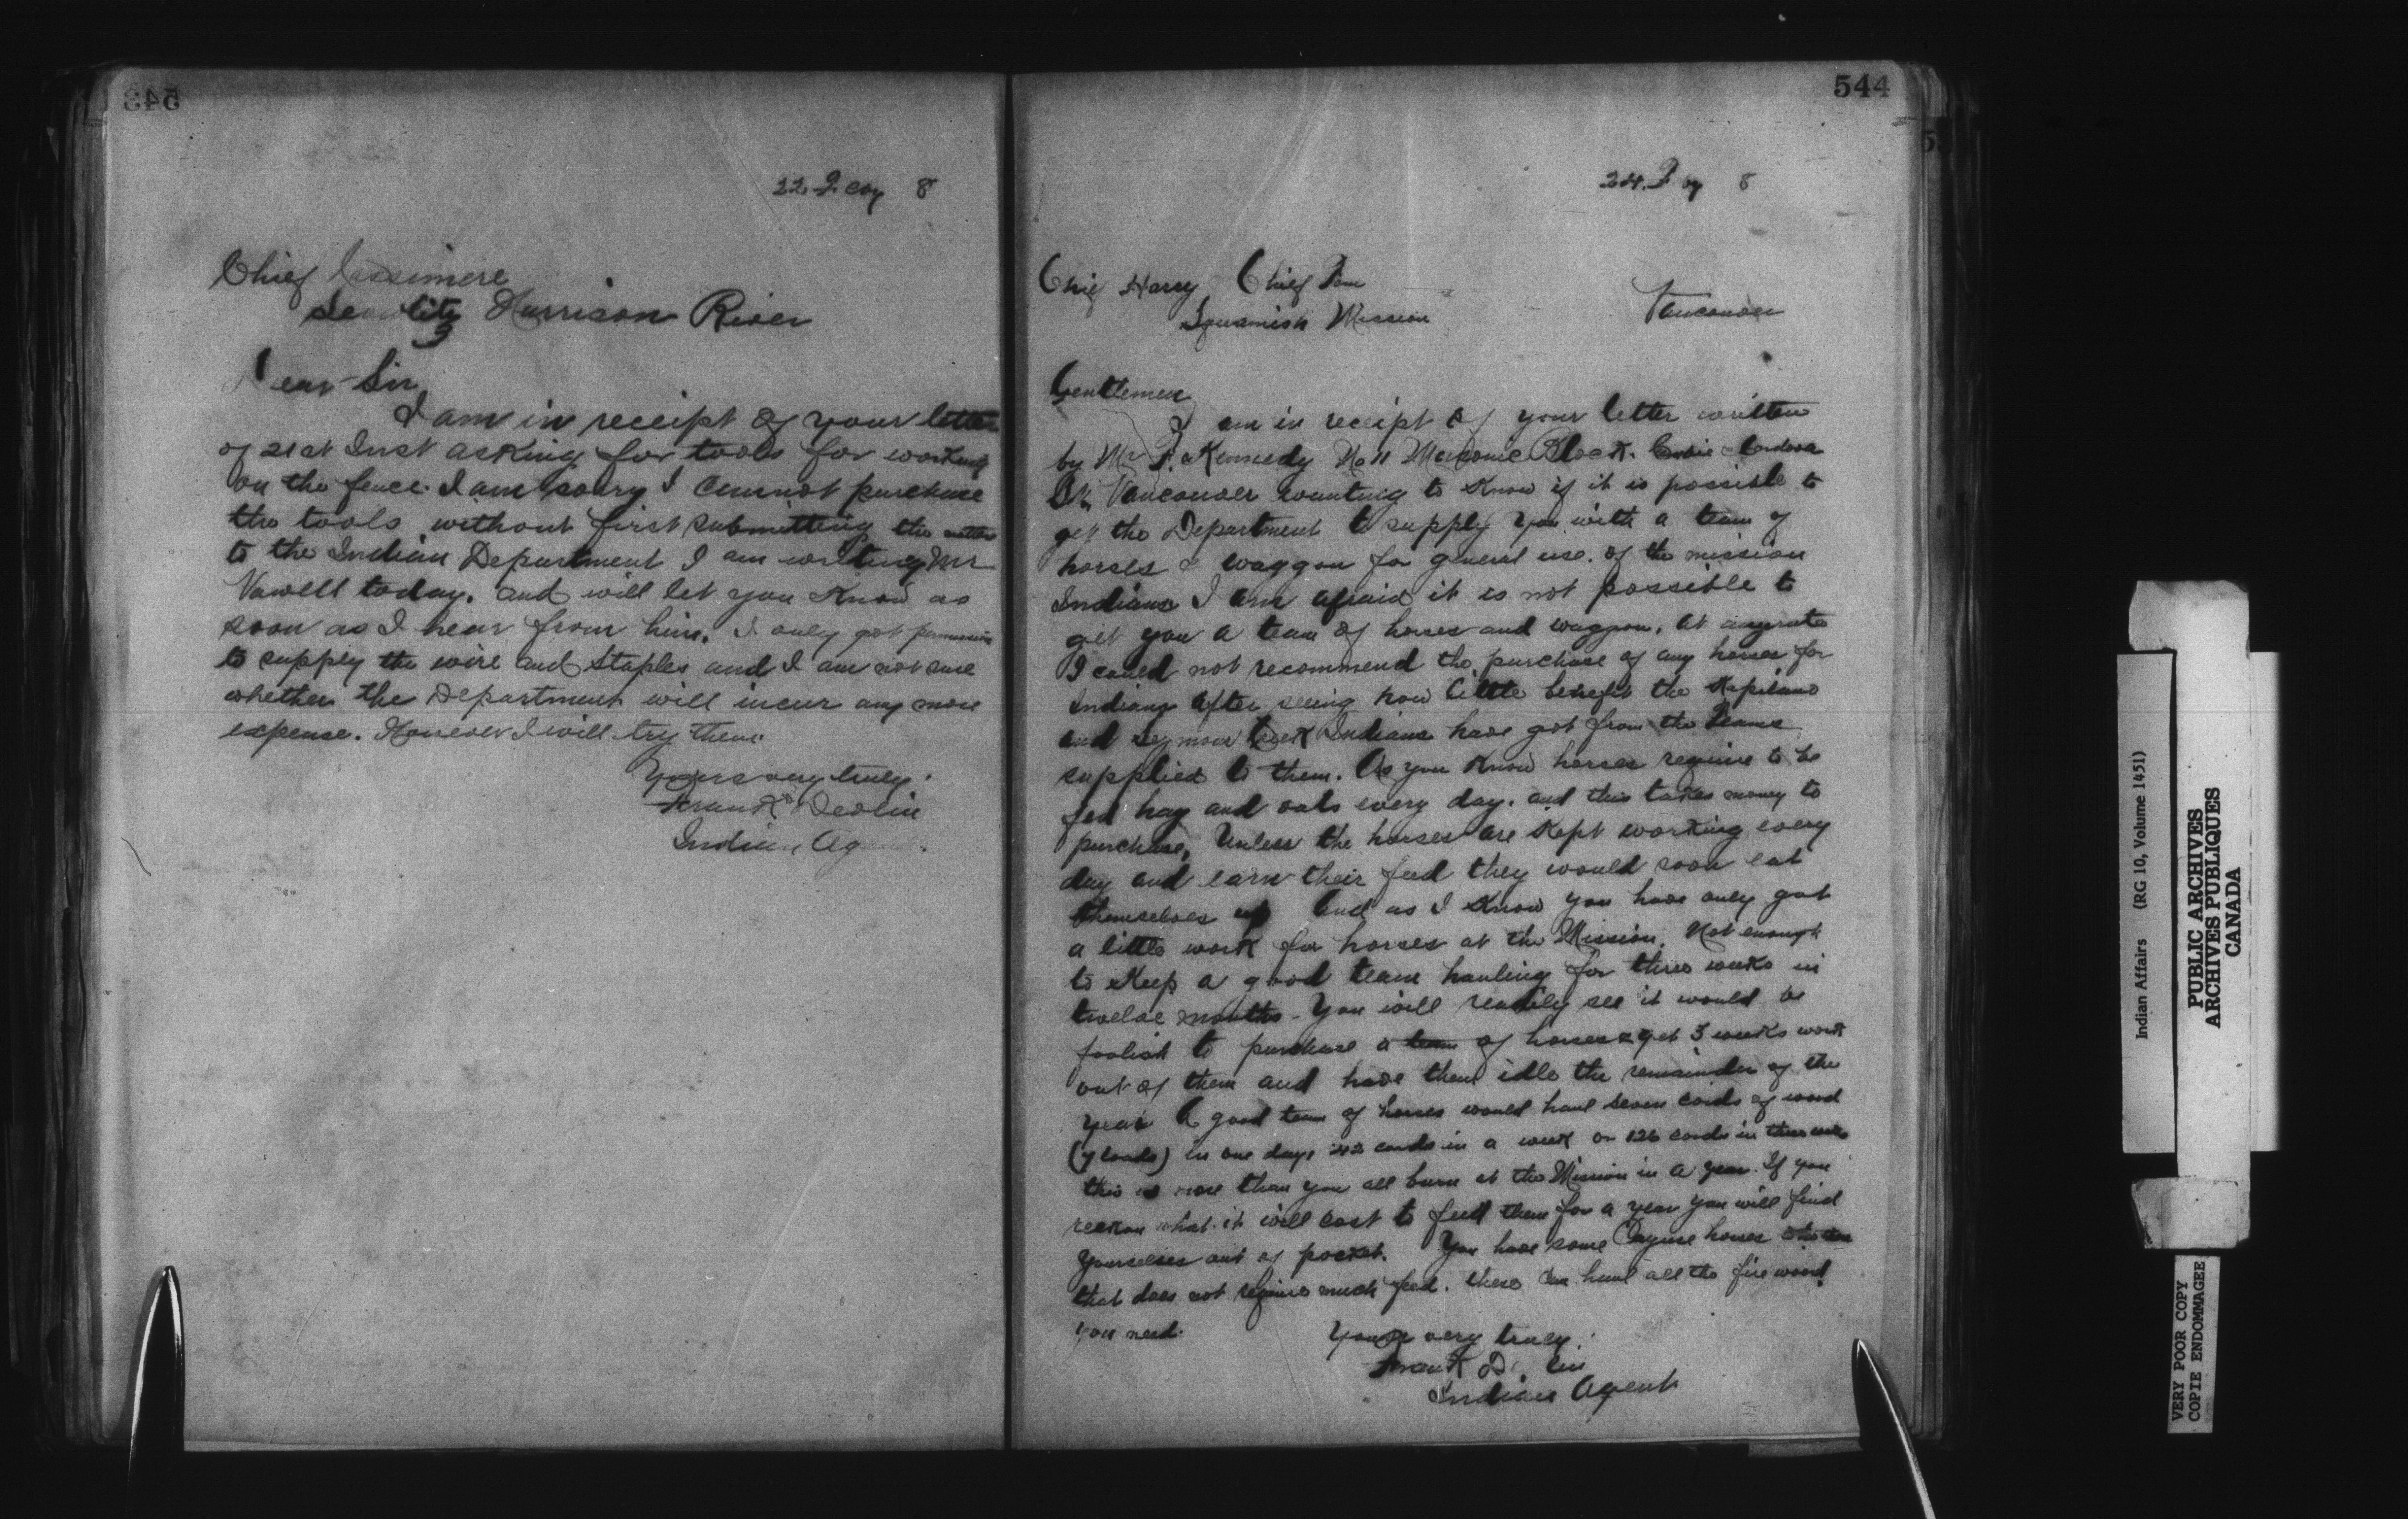 543
22
8
Chief
Harrison River
Dear Sir
I am in receipt of your letter
of 21st Inst asking for tools for working
on the fence. I am sorry I cannot purchase
the tools without first submitting the matter
to the Indian Department I am writing Mr
Vowell today. and will let you know as
soon as I hear from him. I only got permission
to supply the wire and staples and I am not sure
whether the Department will incur any more
expense. However I will try them.
Yours very truly.
Frank Devlin
Indian Agent
544
24
8
Chief Harry Chief Tom
Squamish Mission
Vancouver
Gentlemen
I am in receipt of your letter written
by Mr Kennedy No 11 Masonic Block. Cordova
St. Vancouver wanting to know if it is possible to
get the Department to supply you with a team of
horses & waggon for general use. of the mission
Indians I am afraid it is not possible to
get you a team of horses and waggon. At anyrate
I could not recommend the purchase of any horses for
Indians after seeing how little benefit the Kapilano
and Seymour Creek Indians have got from the teams
supplied to them. As you know horses require to be
fed hay and oats every day. and this takes money to
purchase, Unless the horses are kept working every
day and earn their feed they would soon eat
themselves up And as I know you have only got
a little work for horses at the Mission. Not enough
to keep a good team hauling for three weeks in
twelve months - You will readily see it would be
foolish to purchase a team of horses & get 3 weeks work
out of them and have them idle the remainder of the
year A good team of horses would haul seven cords of wood
(7 loads) in one day, 42 cords in a week or 126 cords in three weeks
this is more than you all burn at the Mission in a year. If you
reckon what it will cost to feed them for a year you will find
yourselves out of pocket. You have some Cayuse horses
that does not require much feed. these can haul all the fire wood
you need.
Yours very truly.
Frank Devlin
Indian Agent
Indian Affairs (RG 10, Volume 1451)
PUBLIC ARCHIVES
ARCHIVES PUBLIQUES
CANADA
VERY POOR COPY
COPIE ENDOMMAGEE